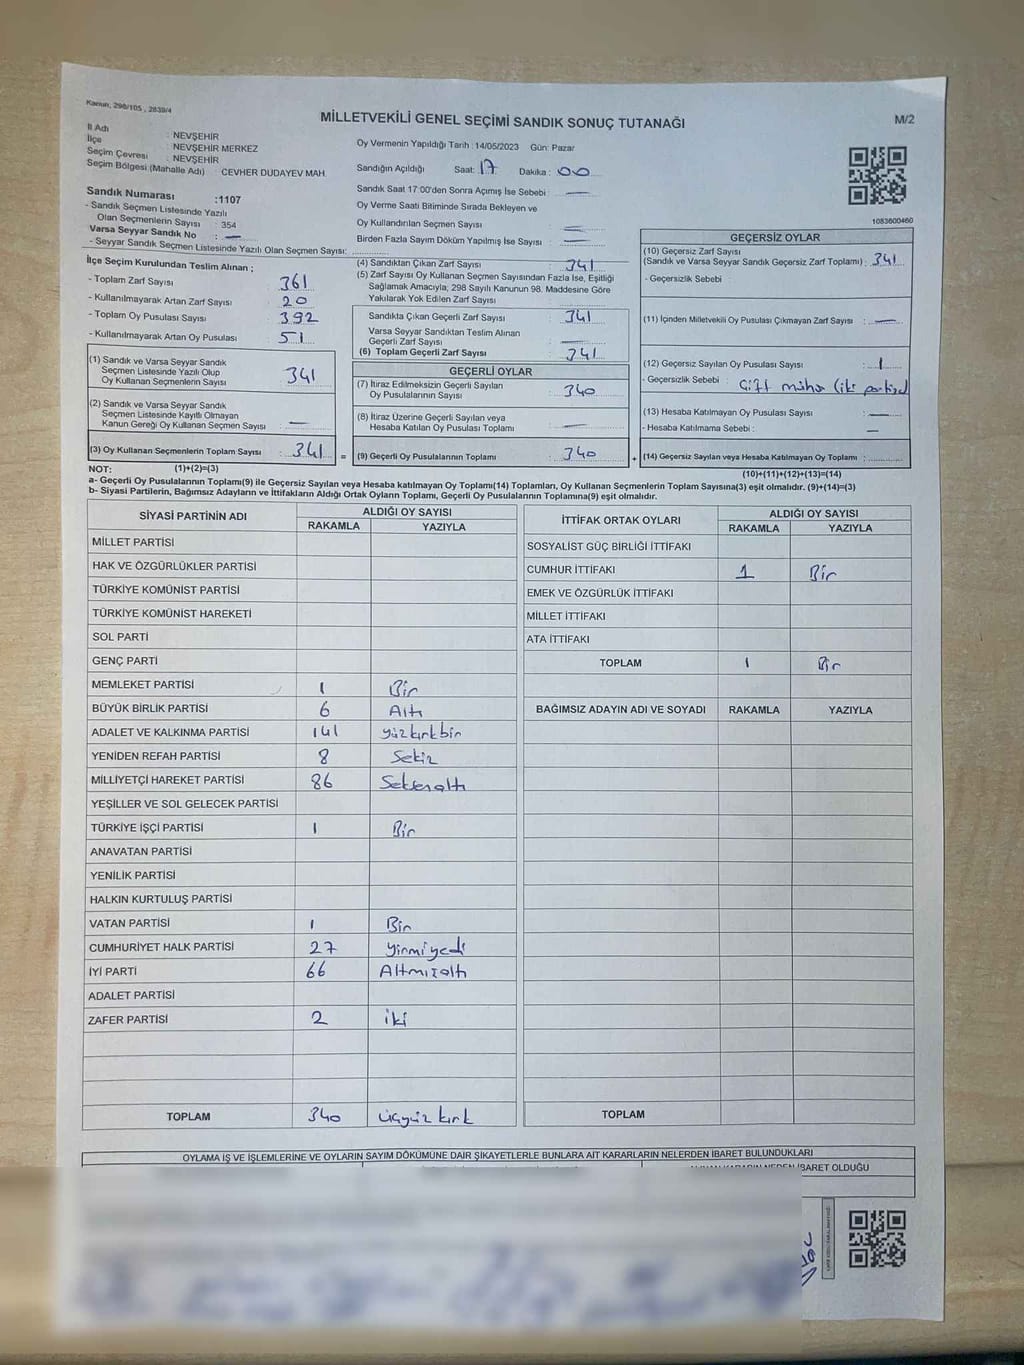 Kanun, 298/105 , 2839/4
MİLLETVEKİLİ GENEL SEÇİMİ SANDIK SONUÇ TUTANAĞI
M/2
İl Adı : NEVŞEHİR
İlçe : NEVŞEHİR MERKEZ
Seçim Çevresi : NEVŞEHİR
Seçim Bölgesi (Mahalle Adı) : CEVHER DUDAYEV MAH.
Sandık Numarası :1107
- Sandık Seçmen Listesinde Yazılı
Olan Seçmenlerin Sayısı : 354
Varsa Seyyar Sandık No : —
- Seyyar Sandık Seçmen Listesinde Yazılı Olan Seçmen Sayısı:
Oy Vermenin Yapıldığı Tarih : 14/05/2023 Gün: Pazar
Sandığın Açıldığı Saat: 17 Dakika : 00
Sandık Saat 17:00'den Sonra Açımış İse Sebebi : —
Oy Verme Saati Bitiminde Sırada Bekleyen ve
Oy Kullandırılan Seçmen Sayısı : —
Birden Fazla Sayım Döküm Yapılmış İse Sayısı : —
1083600460
İlçe Seçim Kurulundan Teslim Alınan ;
- Toplam Zarf Sayısı : 361
- Kullanılmayarak Artan Zarf Sayısı : 20
- Toplam Oy Pusulası Sayısı : 392
- Kullanılmayarak Artan Oy Pusulası : 51
(1) Sandık ve Varsa Seyyar Sandık
Seçmen Listesinde Yazılı Olup
Oy Kullanan Seçmenlerin Sayısı : 341
(2) Sandık ve Varsa Seyyar Sandık
Seçmen Listesinde Kayıtlı Olmayan
Kanun Gereği Oy Kullanan Seçmen Sayısı : —
(3) Oy Kullanan Seçmenlerin Toplam Sayısı : 341 =
(4) Sandıktan Çıkan Zarf Sayısı : 341
(5) Zarf Sayısı Oy Kullanan Seçmen Sayısından Fazla İse, Eşitliği
Sağlamak Amacıyla; 298 Sayılı Kanunun 98. Maddesine Göre
Yakılarak Yok Edilen Zarf Sayısı :
Sandıkta Çıkan Geçerli Zarf Sayısı : 341
Varsa Seyyar Sandıktan Teslim Alınan
Geçerli Zarf Sayısı : —
(6) Toplam Geçerli Zarf Sayısı : 341
GEÇERLİ OYLAR
(7) İtiraz Edilmeksizin Geçerli Sayılan
Oy Pusulasının Sayısı : 340
(8) İtiraz Üzerine Geçerli Sayılan veya
Hesaba Katılan Oy Pusulası Toplamı : —
(9) Geçerli Oy Pusulalarının Toplamı : 340 +
GEÇERSİZ OYLAR
(10) Geçersiz Zarf Sayısı
(Sandık ve Varsa Seyyar Sandık Geçersiz Zarf Toplamı) : 341
- Geçersizlik Sebebi
(11) İçinden Milletvekili Oy Pusulası Çıkmayan Zarf Sayısı : —
(12) Geçersiz Sayılan Oy Pusulası Sayısı : 1
- Geçersizlik Sebebi : Çift mühür (iki
(13) Hesaba Katılmayan Oy Pusulası Sayısı : —
- Hesaba Katılmama Sebebi : —
(14) Geçersiz Sayılan veya Hesaba Katılmayan Oy Toplamı :
NOT: (1)+(2)=(3)
(10)+(11)+(12)+(13)=(14)
a- Geçerli Oy Pusulasının Toplamı(9) ile Geçersiz Sayılan veya Hesaba katılmayan Oy Toplamı(14) Toplamları, Oy Kullanan Seçmenlerin Toplam Sayısına(3) eşit olmalıdır. (9)+(14)=(3)
b- Siyasi Partilerin, Bağımsız Adayların ve İttifakların Aldığı Ortak Oyların Toplamı, Geçerli Oy Pusulalarının Toplamına(9) eşit olmalıdır.
SİYASİ PARTİNİN ADI
ALDIĞI OY SAYISI
RAKAMLA YAZIYLA
MİLLET PARTİSİ
HAK VE ÖZGÜRLÜKLER PARTİSİ
TÜRKİYE KOMÜNİST PARTİSİ
TÜRKİYE KOMÜNİST HAREKETİ
SOL PARTİ
GENÇ PARTİ
MEMLEKET PARTİSİ 1 Bir
BÜYÜK BİRLİK PARTİSİ 6 Altı
ADALET VE KALKINMA PARTİSİ 141 yüzkırkbir
YENİDEN REFAH PARTİSİ 8 Sekiz
MİLLİYETÇİ HAREKET PARTİSİ 86 Seksenaltı
YEŞİLLER VE SOL GELECEK PARTİSİ
TÜRKİYE İŞÇİ PARTİSİ 1 Bir
ANAVATAN PARTİSİ
YENİLİK PARTİSİ
HALKIN KURTULUŞ PARTİSİ
VATAN PARTİSİ 1 Bir
CUMHURİYET HALK PARTİSİ 27 yirmiyedi
İYİ PARTİ 66 Altmışaltı
ADALET PARTİSİ
ZAFER PARTİSİ 2 iki
TOPLAM 340 üçyüz kırk
İTTİFAK ORTAK OYLARI
ALDIĞI OY SAYISI
RAKAMLA YAZIYLA
SOSYALİST GÜÇ BİRLİĞİ İTTİFAKI
CUMHUR İTTİFAKI 1 Bir
EMEK VE ÖZGÜRLÜK İTTİFAKI
MİLLET İTTİFAKI
ATA İTTİFAKI
TOPLAM 1 Bir
BAĞIMSIZ ADAYIN ADI VE SOYADI RAKAMLA YAZIYLA
TOPLAM
OYLAMA İŞ VE İŞLEMLERİNE VE OYLARIN SAYIM DÖKÜMÜNE DAİR ŞİKAYETLERLE BUNLARA AİT KARARLARIN NELERDEN İBARET BULUNDUKLARI
İBARET OLDUĞU